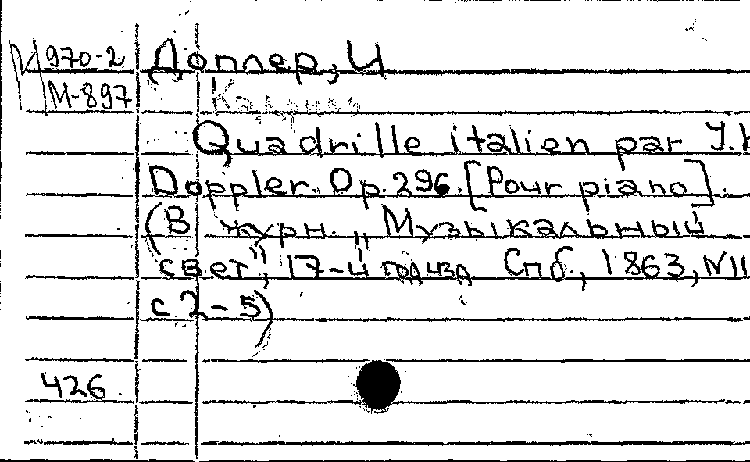 М 970-2 Доплер, И
М-897
Quadrille italien par J.H
Doppler. Op. 296. [Pour piano].
(В журн. „Музыкальный
свет", 17-й год изд Спб., 1863, N11
с 2-5)
426